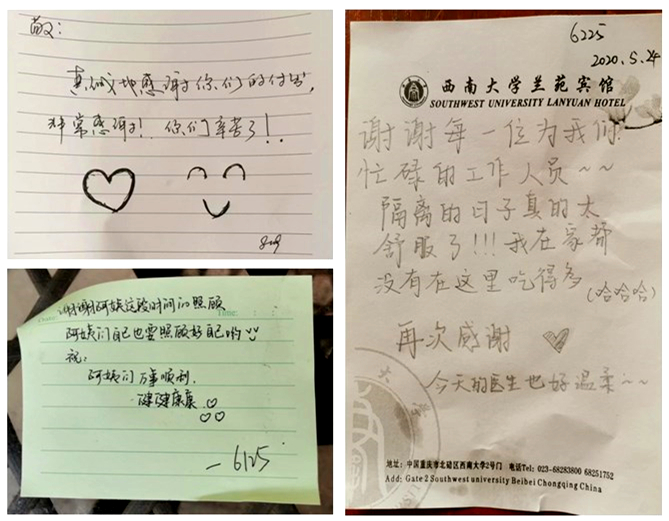 敬:
真诚地感谢你们的付出,
非常感谢!你们辛苦了!
谢谢阿姨这段时间的照顾
阿姨们自己也要照顾好自己哟
祝:
阿姨们万事顺利,
健健康康
—6125
6225
2020.5.24
西南大学兰苑宾馆
SOUTHWEST UNIVERSITY LANYUAN HOTEL
谢谢每一位为我们
忙碌的工作人员~~
隔离的日子真的太
舒服了!!!我在家都
没有在这里吃得多(哈哈哈)
再次感谢
今天的医生也好温柔~~
地址:中国重庆市北碚区西南大学2号门 电话Tel: 023-68283800 68251752
Add: Gate 2 Southwest university Beibei Chongqing China